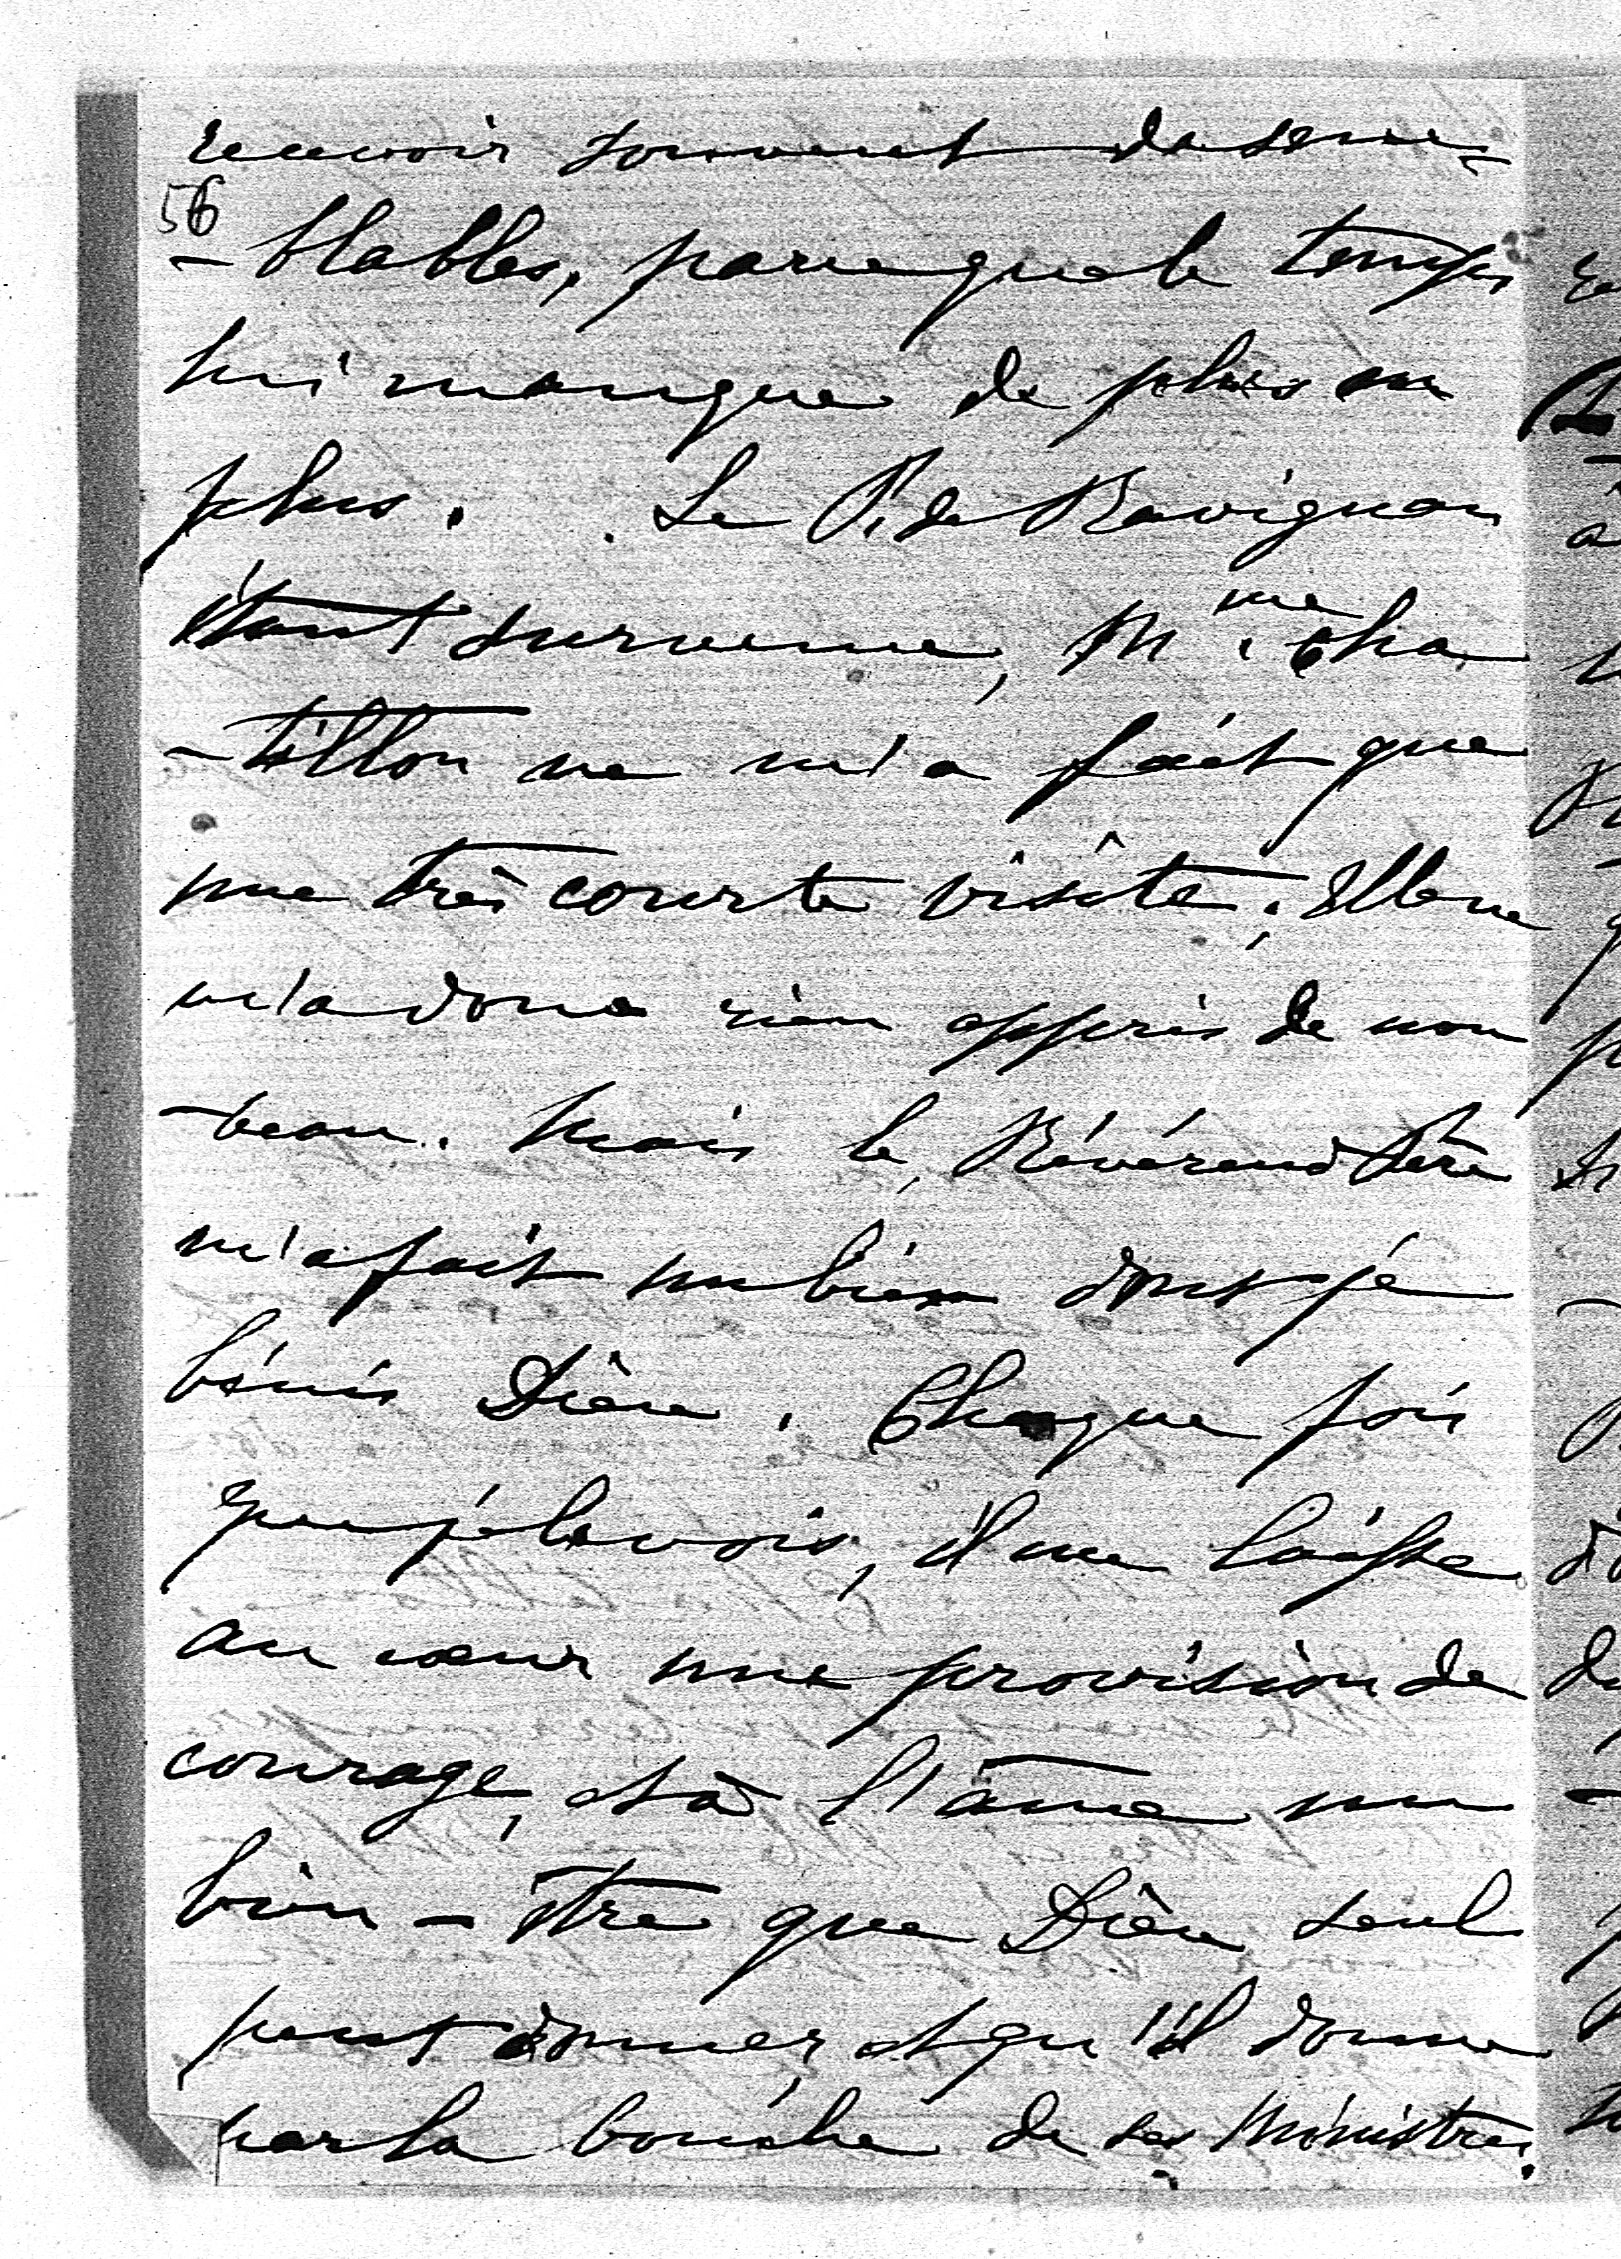 recevoir souvent de sem-
56
-blables, parce que le temps
lui manque de plus en
plus. Le P. de Ravignan
étant survenu, Mme. Cha
-tillon ne m'a fait que
une très courte visite; Elle ne
m'a donc rien appris de nou
-veau. Mais le Révérend Père
m'a fait un bien dont je
bénis Dieu. Chaque fois
que je le vois, il me laisse
au cœur une provision de
courage, et à l'âme un
bien-être que Dieu seul
peut donner, et qu'il donne
par la bouche de ses Ministres.